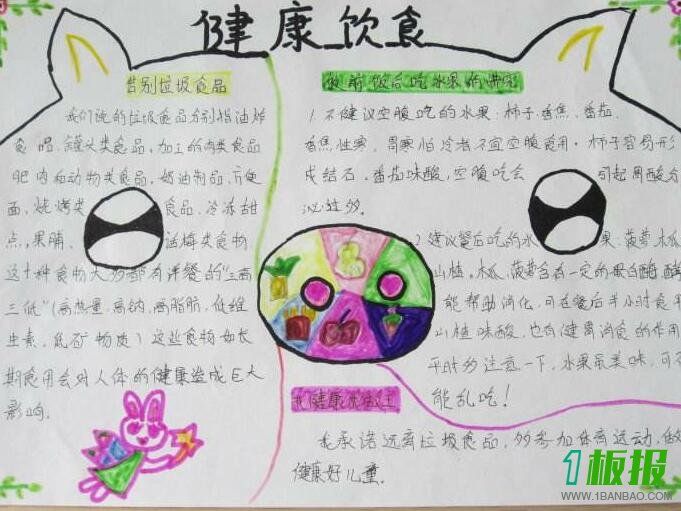 健康饮食
告别垃圾食品
我们说的垃圾食品分别指油炸
食品、罐头类食品,加工的肉类食品
肥肉和动物类食品,奶油制品,方便
面,烧烤类食品,冷冻甜
点,果脯、话梅类食物
这十种食物大多都有洋餐的“三高
三低”(高热量,高钠,高脂肪,低维
生素,低矿物质)这些食物如长
期食用会对人体的健康造成巨大
影响。
饭前饭后吃水果的
1.不健议空腹吃的水果:柿子香焦、番茄
香焦性寒,胃寒怕冷者不宜空腹食用,柿子容易形
成结石,番茄味酸,空腹吃会引起胃酸分
泌过多。
2.建议餐后吃的水果:菠萝木瓜
山楂。木瓜、菠萝含有一定的蛋白酶
能帮助消化,可在餐后半小时食
山楂味酸,也有健胃消食的作用
平时多注意一下,水果虽美味,可不
能乱吃!
我健康
我承诺远离垃圾食品,多参加体育运动,做
健康好儿童。
1板报
WWW.1BANBAO.COM